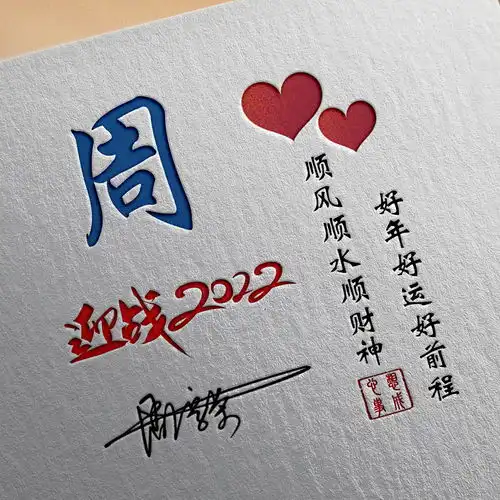 周
迎战2022
好年好运好前程
顺风顺水顺财神
心想事成